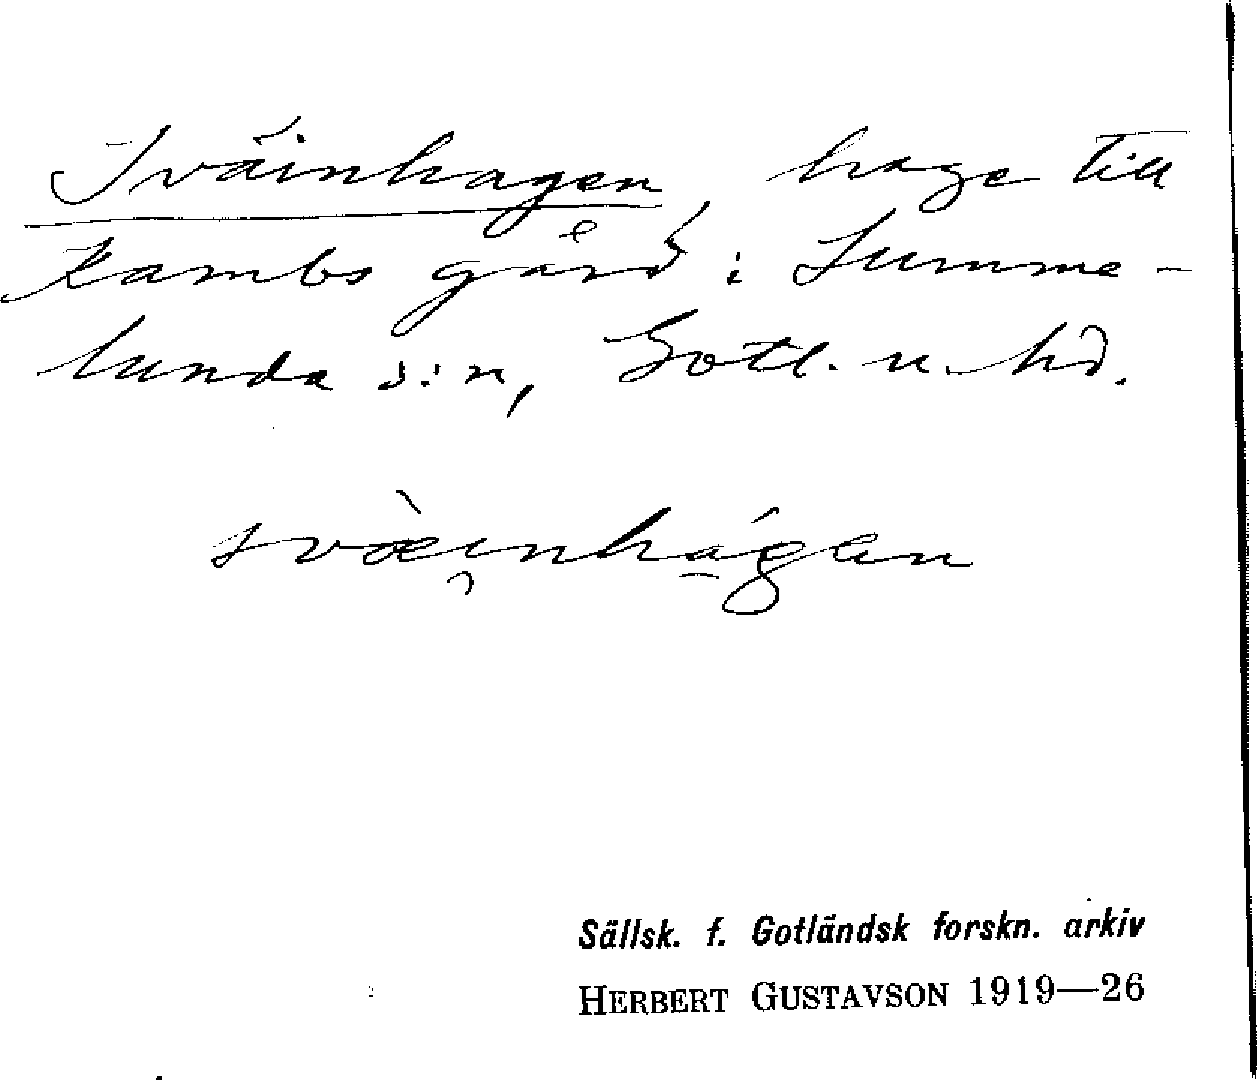 Sväinhagen, hage till
Kambs gård i Lumme-
lunda s:n, Gotl. n. hd.
svὰinhágen
Sällsk. f. Gotländsk forskn. arkiv
HERBERT GUSTAVSON 1919—26